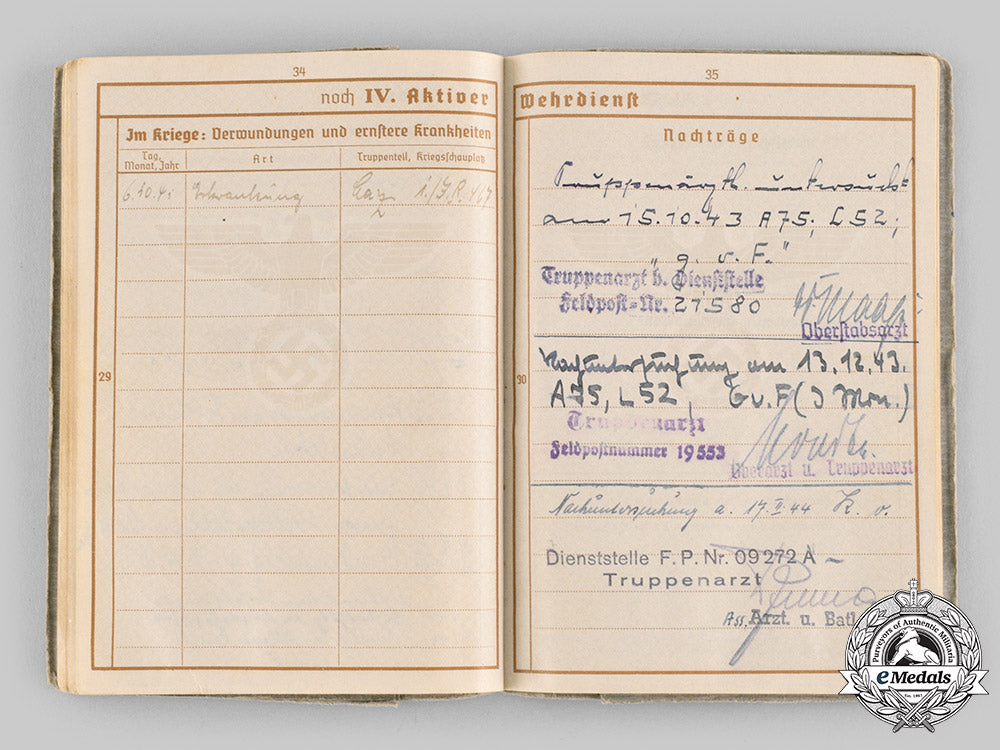 34
noch IV. Aktiver
Im Kriege: Verwundungen und ernstere Krankheiten
Tag, Monat, Jahr
Art
Truppenteil, Kriegsschauplatz
6.10.41 Erkrankung 1./J.R. 467
29
35
Wehrdienst
Nachträge
Truppenärztl. untersucht
am 15.10.43 A75, L52,
"g. v. F."
Truppenarzt b. Dienststelle
Feldpost-Nr. 27580
Oberstabsarzt
30
Nachuntersuchung am 13.12.43.
A75, L52, Gv.F (3 Mon.)
Truppenarzt
Feldpostnummer 19553
Oberarzt u. Truppenarzt
Nachuntersuchung a. 17.II.44 K. v.
Dienststelle F. P. Nr. 09272 A
Truppenarzt
Ass. Arzt. u. Batl.
Purveyors of Authentic Militaria
eMedals
Est. 1967